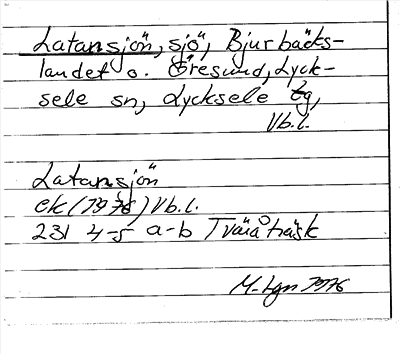 Latansjön, sjö, Bjurbäcks-
landet o. Öresund, Lyck-
sele sn, Lycksele tg,
Vb.l.
Latansjön
ek (1976) Vb.l.
231 4-5 a-b Tväråträsk
1976